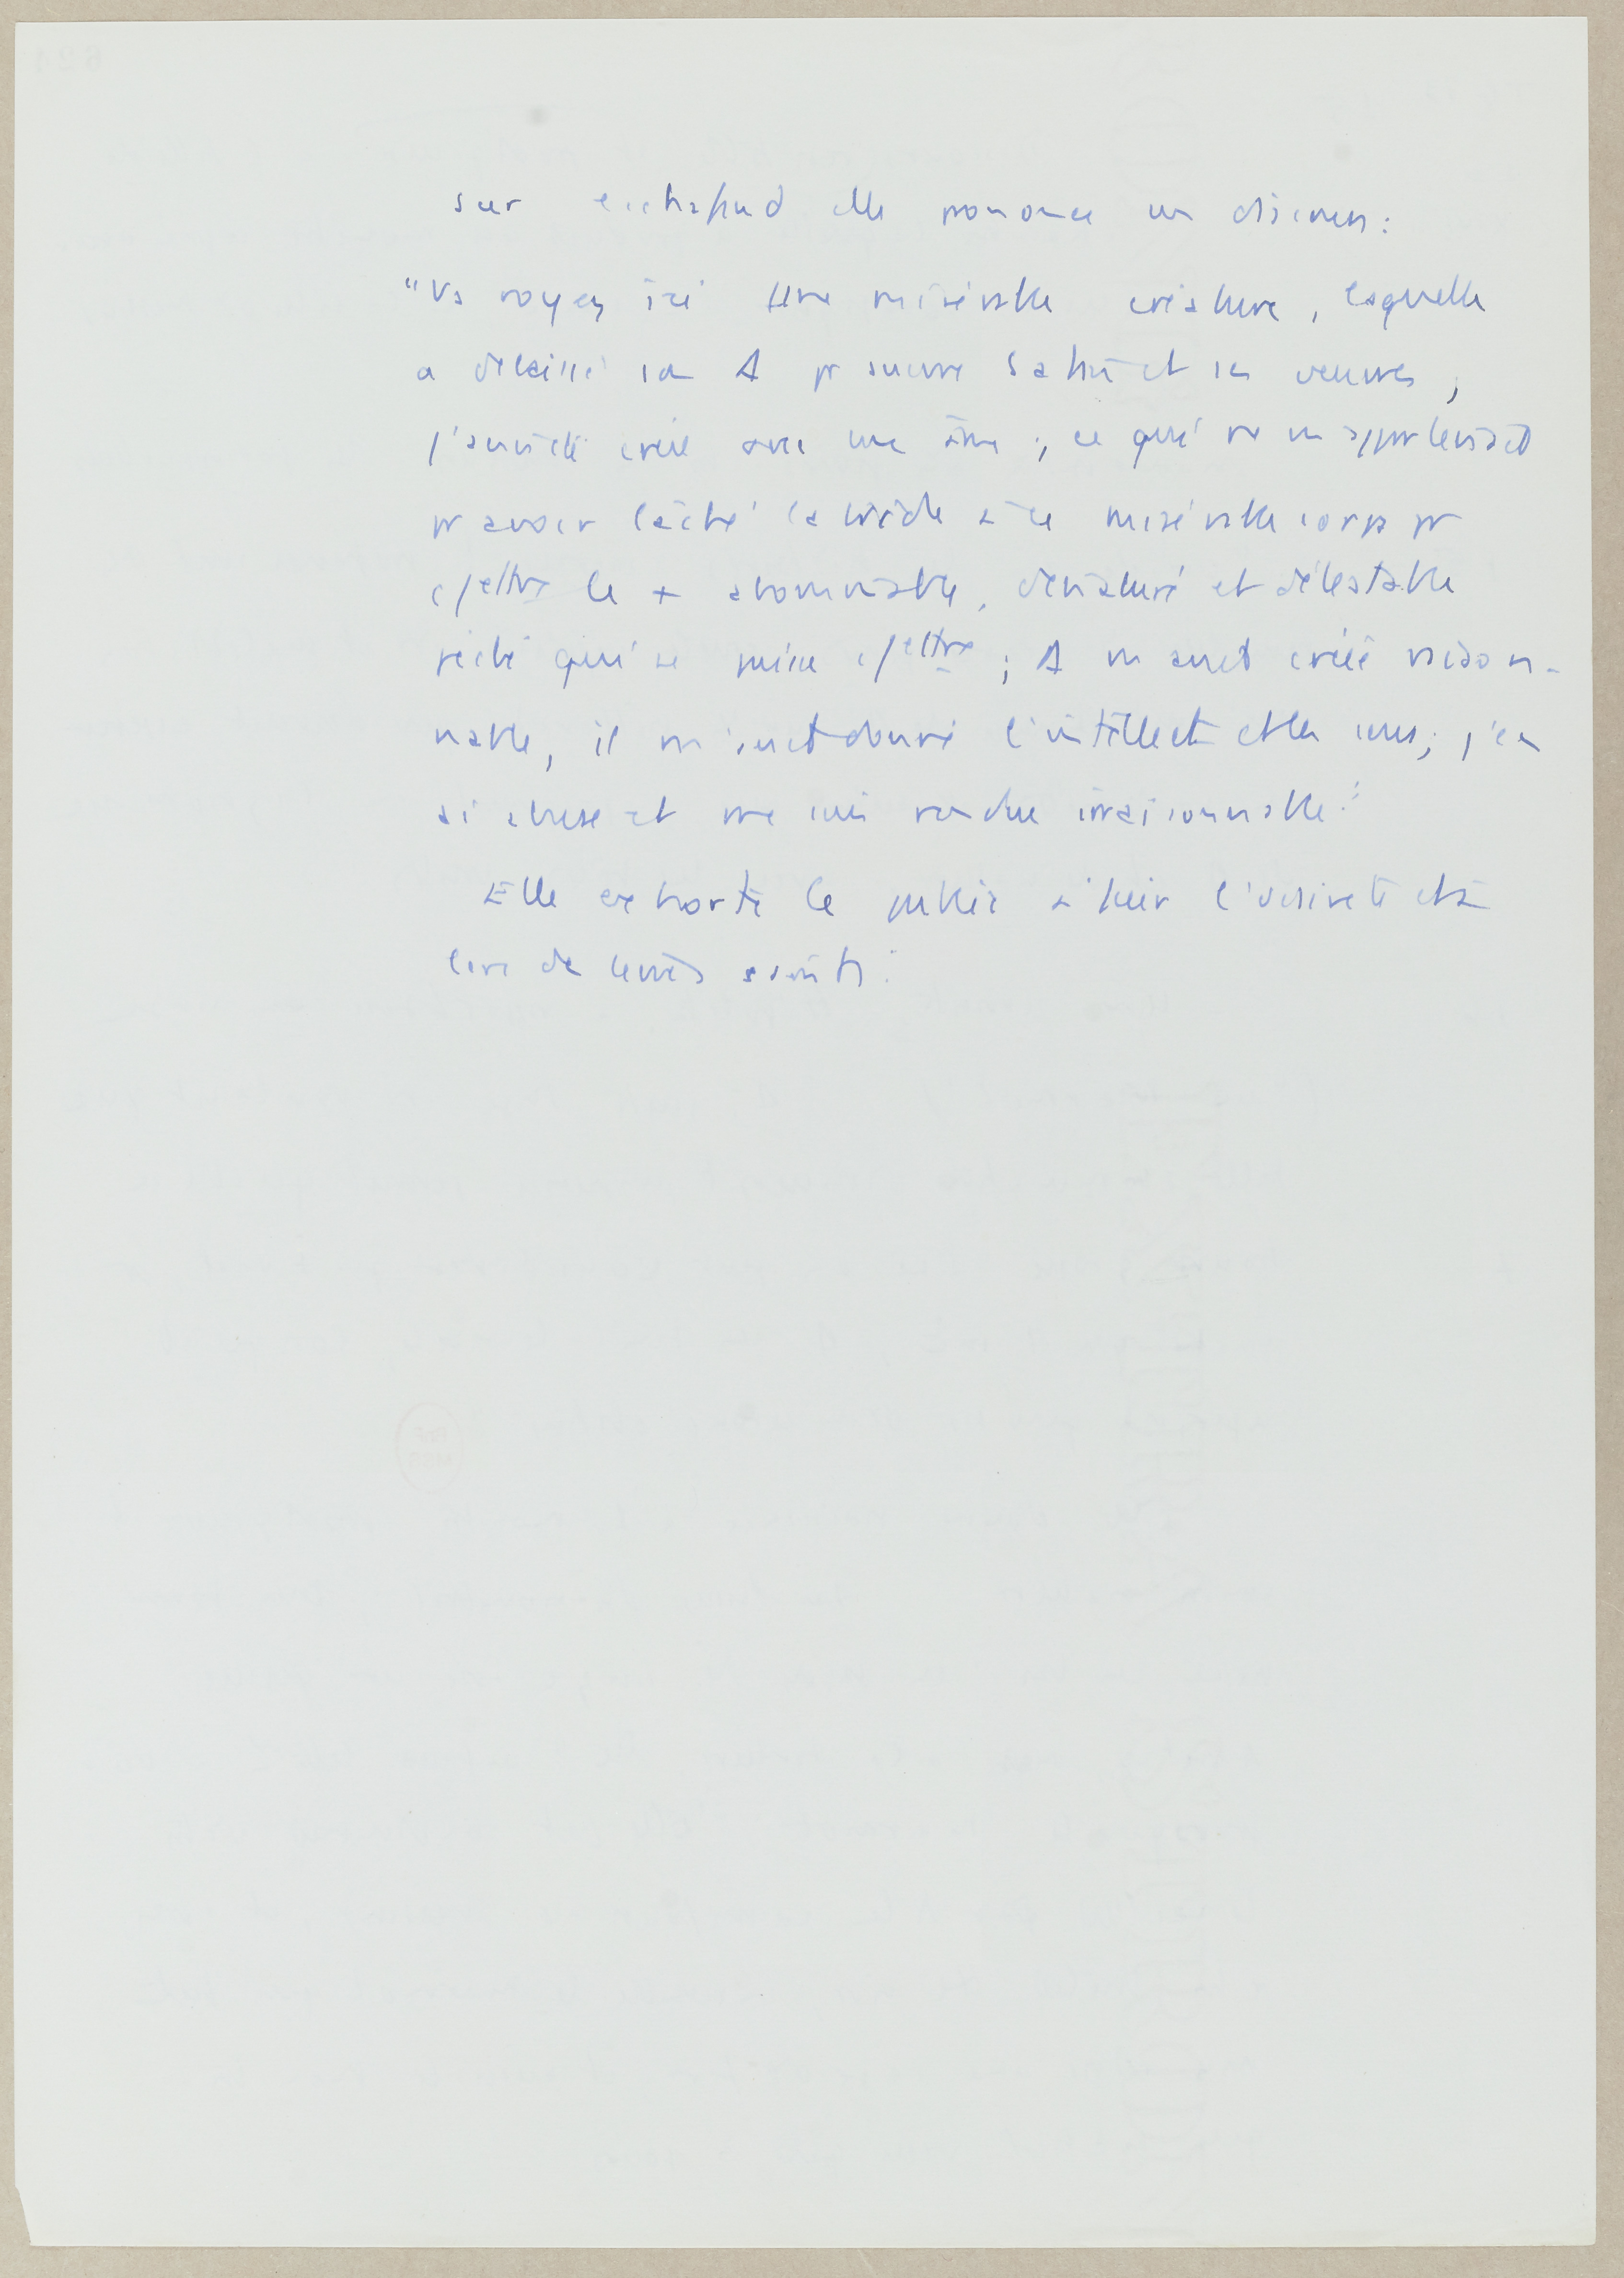 sur echafaud elle prononce un discours :
"Vs voyez ici une misérable créature, laquelle
a délaissé son Δ pr suivre Satan et ses œuvres ;
j'avais été créée avec une âme ; ce qui ne m'appartenait
pr avoir lâché la bride à ce misérable corps pr
c/ettre le + abominable, dénaturé et détestable
péché qui se puisse c/ettre ; Δ m'avait créée raison-
nable, il m'avait donné l'intellect et les sens ; j'en
ai abusé et me suis rendue irraisonnable."
Elle exhorte le public à fuir l'oisiveté et à
lire de livres saints.